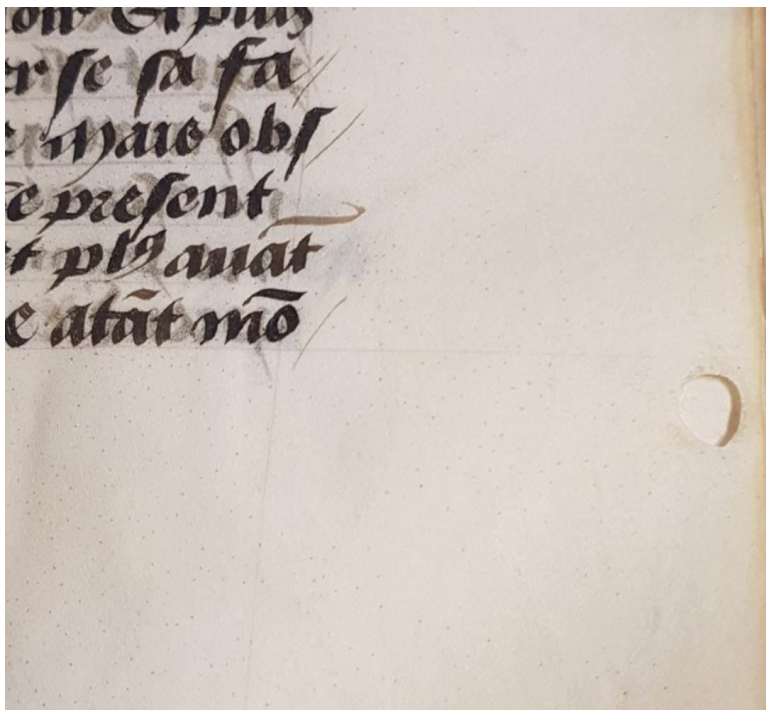 er se sa fa
mais obs
e present
t plꝰ auāt
e atāt mō